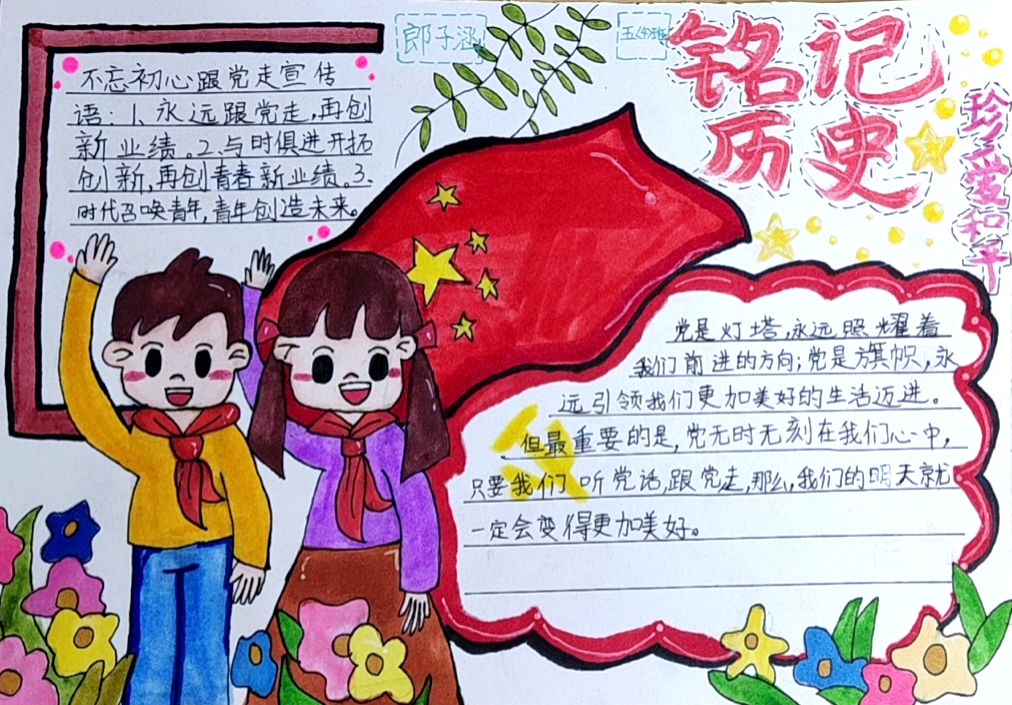 郎子涵
五(4)班
铭记
历史
珍爱和平
不忘初心跟党走宣传
语：1、永远跟党走,再创
新业绩。2.与时俱进开拓
创新,再创青春新业绩。3.
时代召唤青年,青年创造未来。
党是灯塔,永远照耀着
我们前进的方向;党是旗帜,永
远引领我们更加美好的生活迈进。
但最重要的是,党无时无刻在我们心中,
只要我们听党话,跟党走,那么,我们的明天就
一定会变得更加美好。